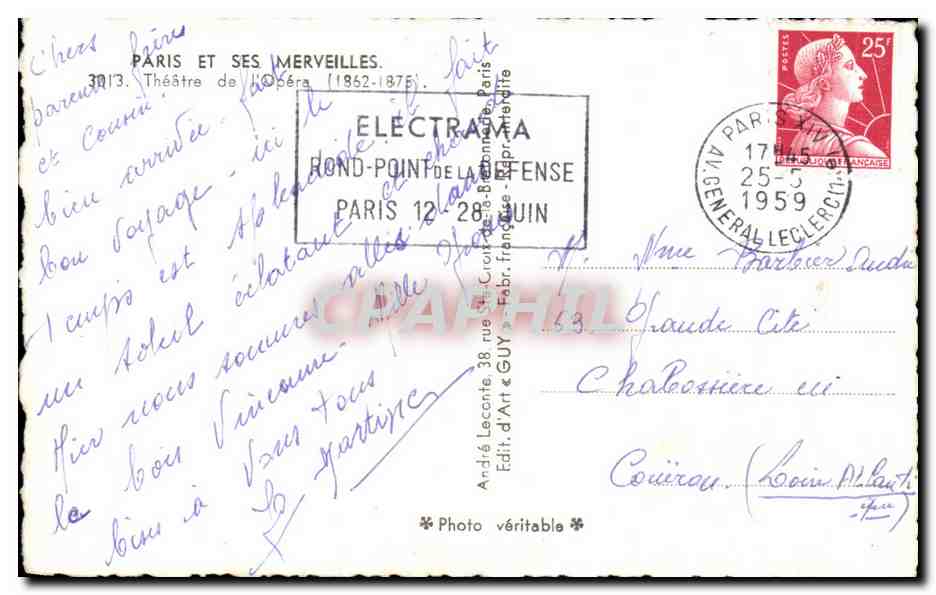 PARIS ET SES MERVEILLES.
3013. Théâtre de l'Opéra (1862-1875).
Chers
parents frères
et cousin.
bien arrivée fait
bon voyage. ici le
temps est splendide. il fait
un soleil éclatant et chaud
Hier nous sommes allés dans
le bois Vincenne. Mille gros
bises à Vous tous
ELECTRAMA
ROND-POINT DE LA DEFENSE
PARIS 12-28 JUIN
POSTES
25F
REPUBLIQUE FRANÇAISE
PARIS XIV
17H45
25-5
1959
AV. GENERAL LECLERC (14e)
André Leconte, 38, rue Ste-Croix-de-la-Bretonnerie, Paris
Edit. d'Art « GUY » - Fabr. française - Repr. interdite
M. Mme Barbier André
53. Grande Cité
Chabossière en
Couëron (Loire Atlantique)
Photo véritable
CPAPHIL